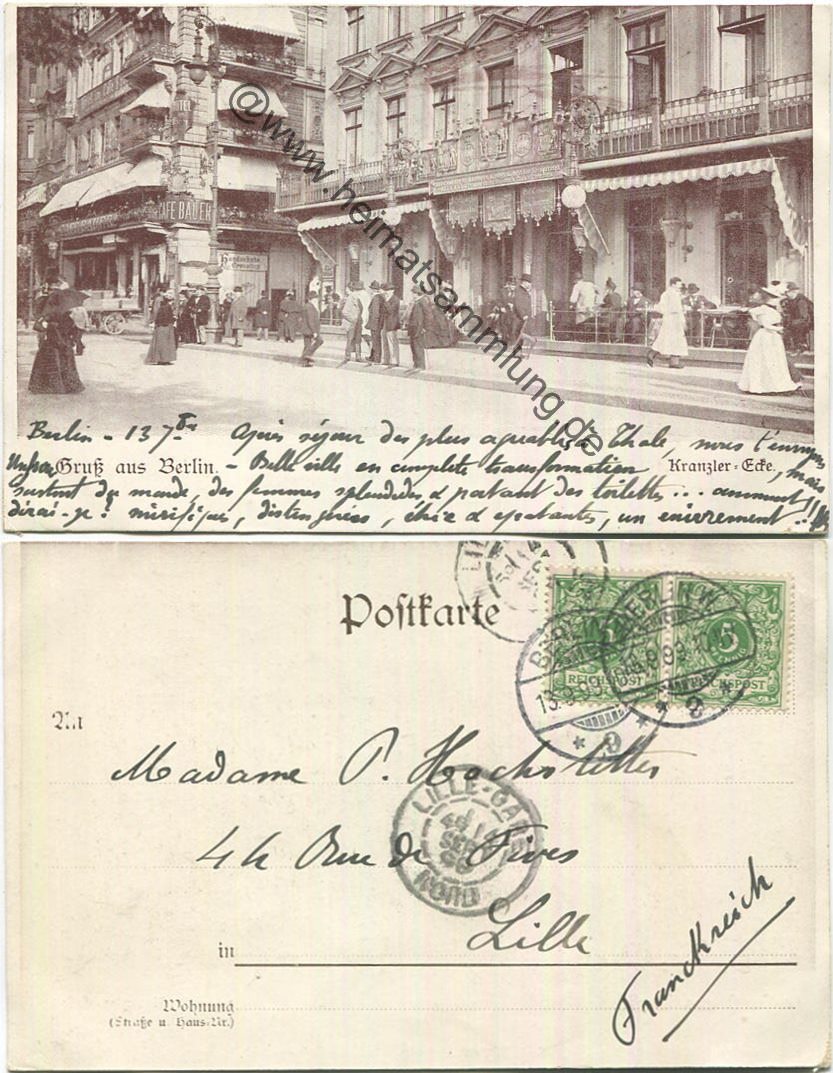 CAFÉ BAUER
Handschuhe
@www.heimatsammlung.de
Berlin - 13 7br Après séjour des plus agréables à Thale, nous t'envoyons
Gruß aus Berlin. - Belle ville en complète transformation, mais Kranzler-Ecke.
surtout du monde, des femmes splendides & portant des toilettes ...
dirai-je! mirifiques, distinguées, chic & épatantes, un énièrement !!
Postkarte
BERLIN N.W.
13.9.99
* 9 *
5 5
REICHSPOST REICHSPOST
An
Madame P. Hochstetter
LILLE-GARE
SEPT
NORD
44 Rue de Fives
in Lille
Franckreich
Wohnung
(Straße u. Haus-Nr.)